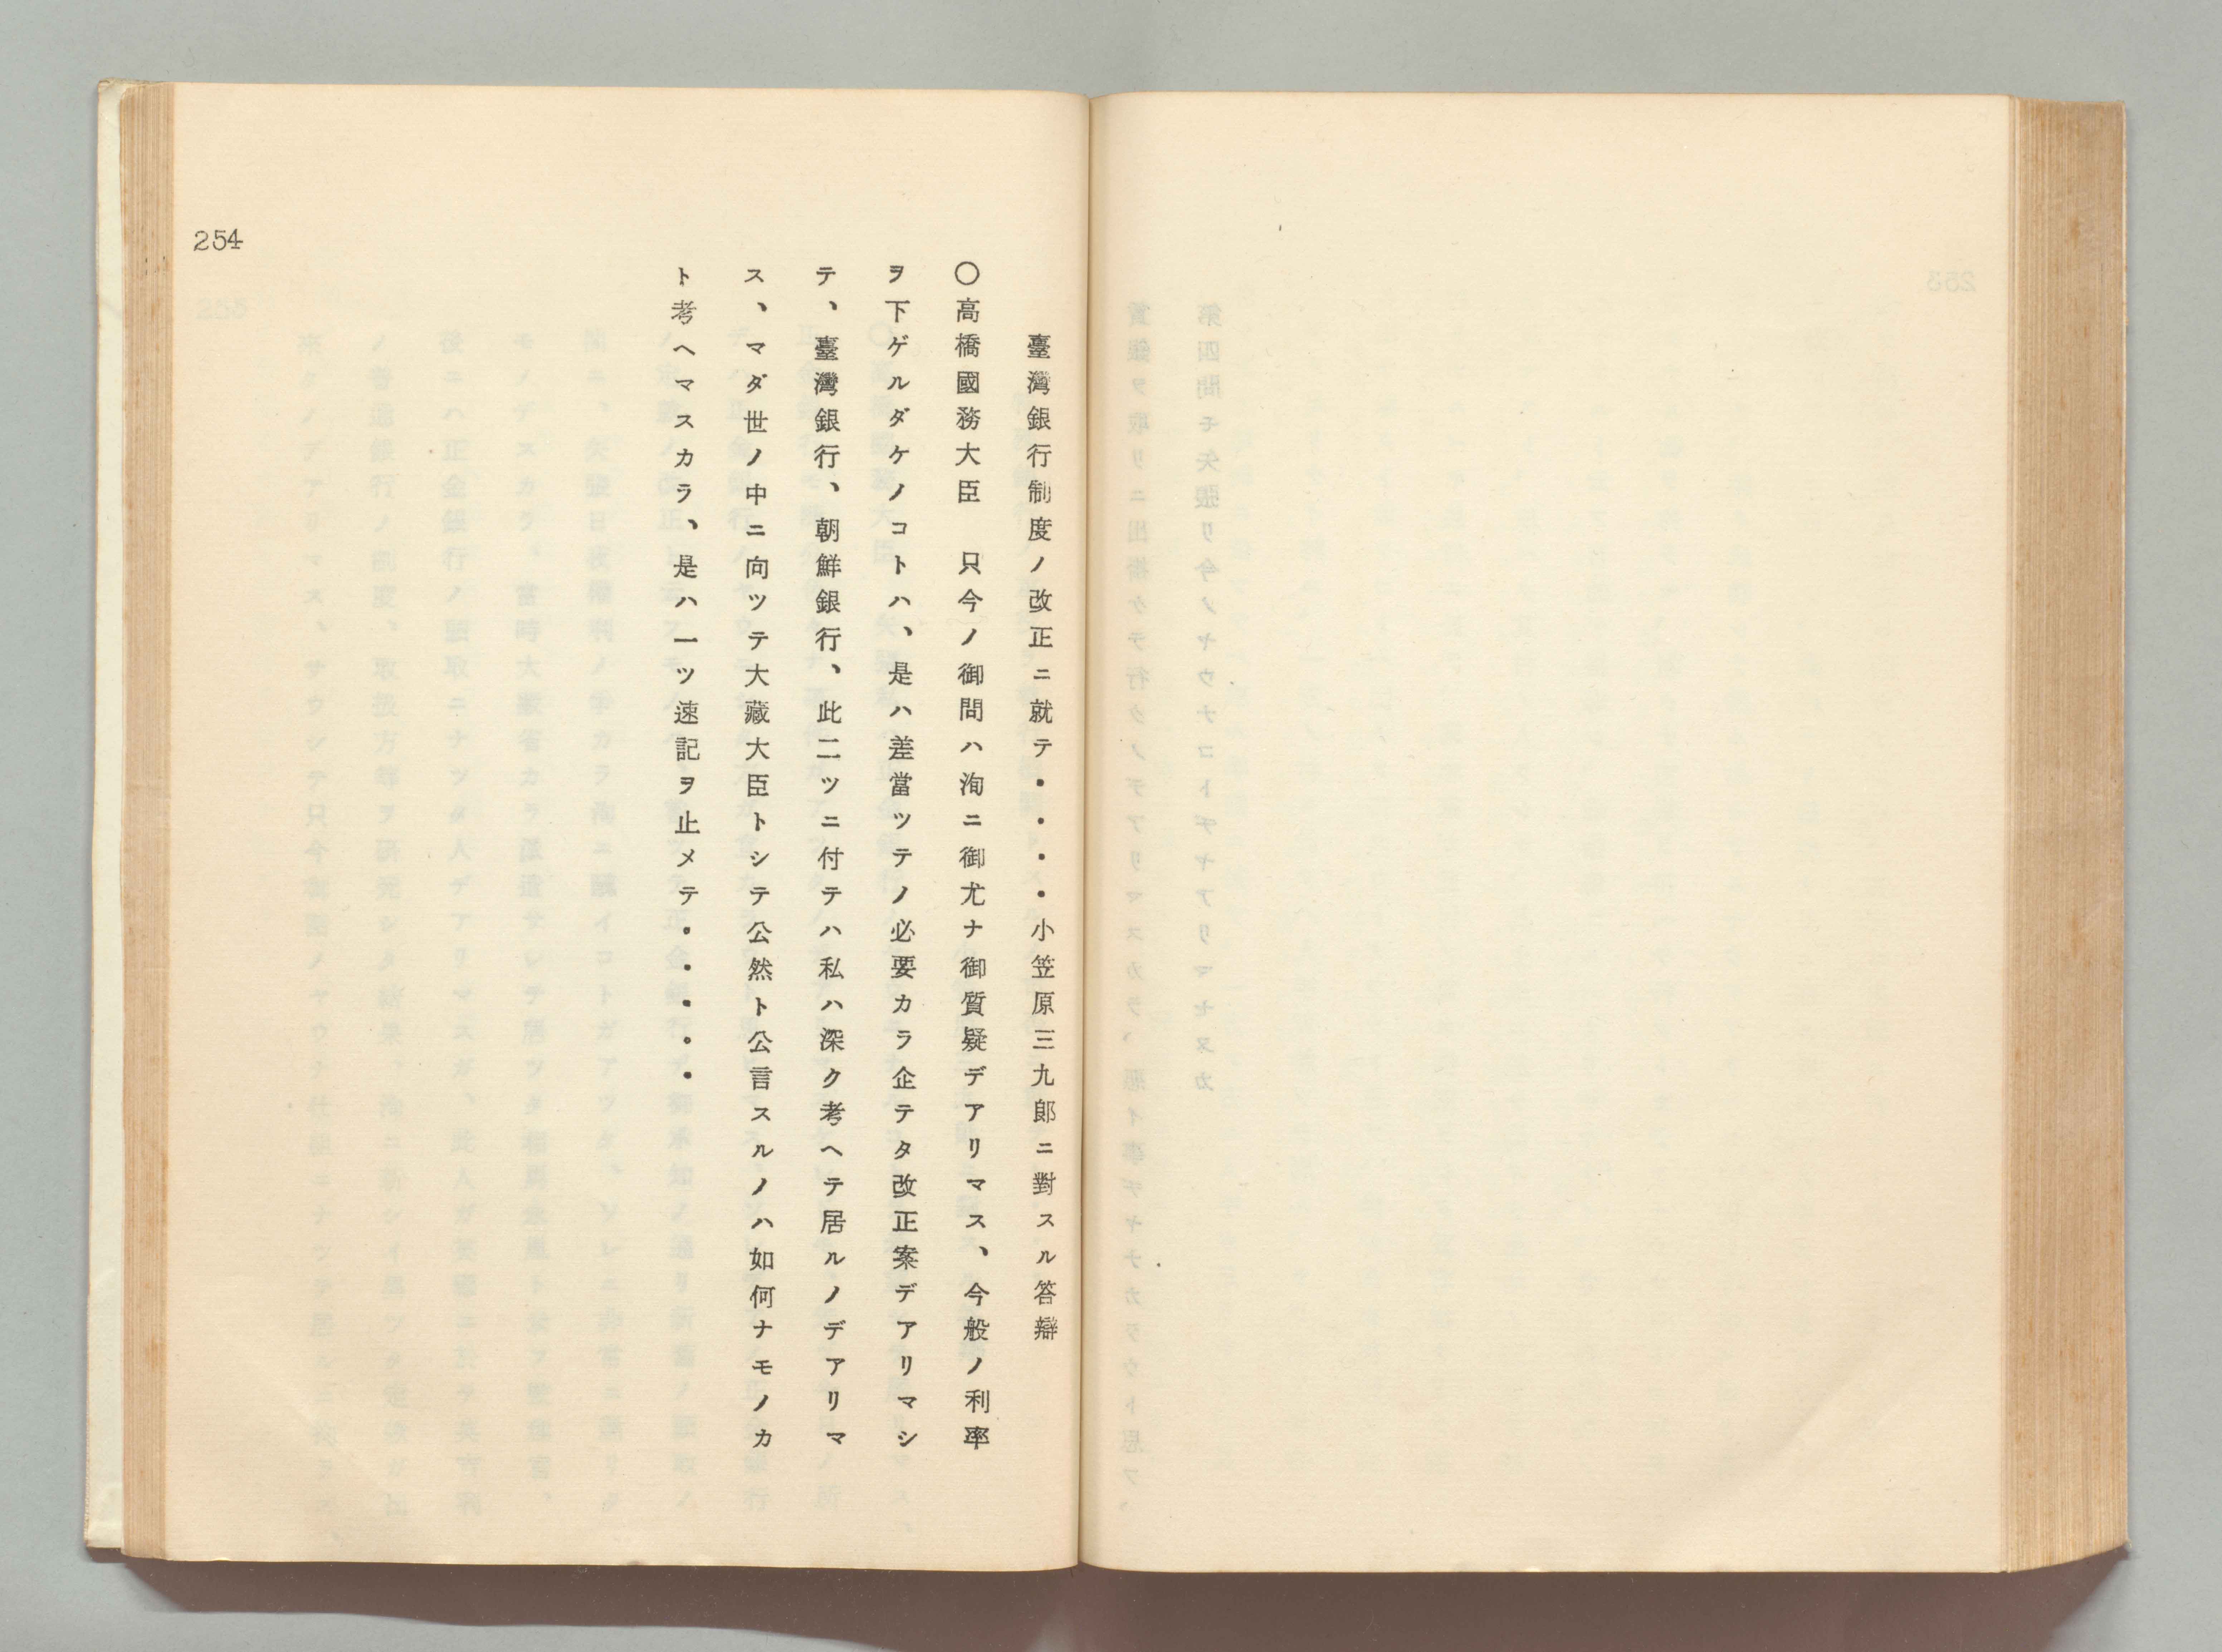 臺灣銀行制度ノ改正ニ就テ・・・・小笠原三九郞ニ對スル答辯
〇高橋國務大臣　只今ノ御問ハ洵ニ御尤ナ御質疑デアリマス、今般ノ利率
ヲ下ゲルダケノコトハ、是ハ差當ツテノ必要カラ企テタ改正案デアリマシ
テ、臺灣銀行、朝鮮銀行、此二ツニ付テハ私ハ深ク考ヘテ居ルノデアリマ
ス、マダ世ノ中ニ向ツテ大藏大臣トシテ公然ト公言スルノハ如何ナモノカ
ト考ヘマスカラ、是ハ一ツ速記ヲ止メテ・・・・・
254